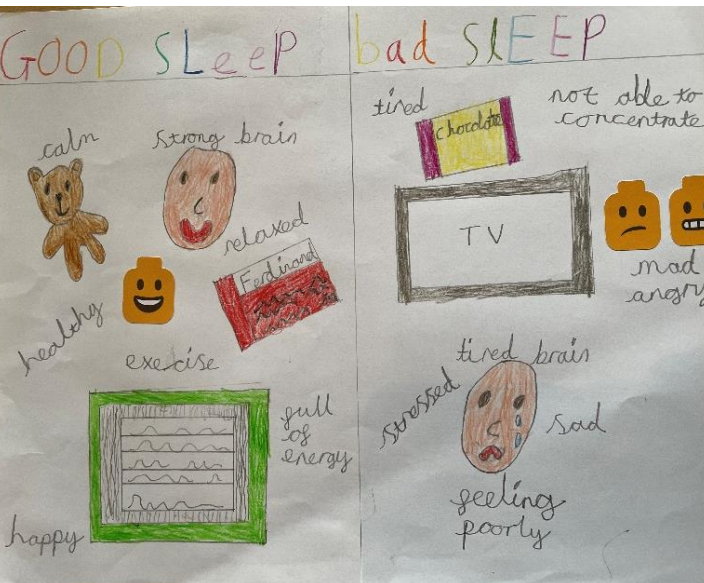 GOOD SLeeP
calm
strong brain
relaxed
Ferdinand
healthy
exercise
full
of
energy
happy
bad SlEEP
tired
chocolate
not able to
concentrate
TV
mad
angry
tired brain
stressed
sad
feeling
poorly